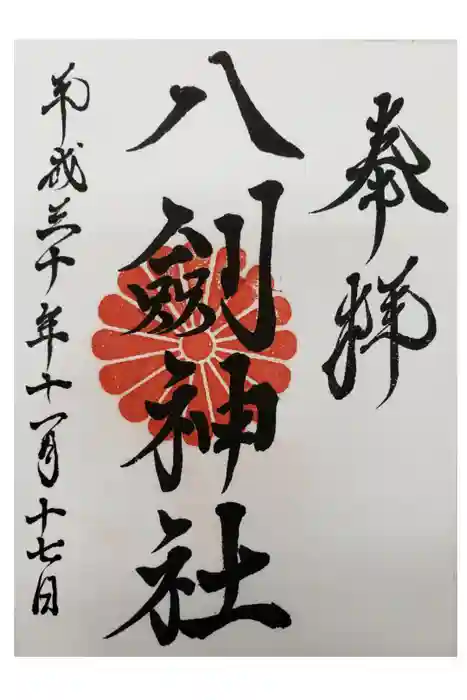 奉拝
八劔神社
平成三十年十一月十七日